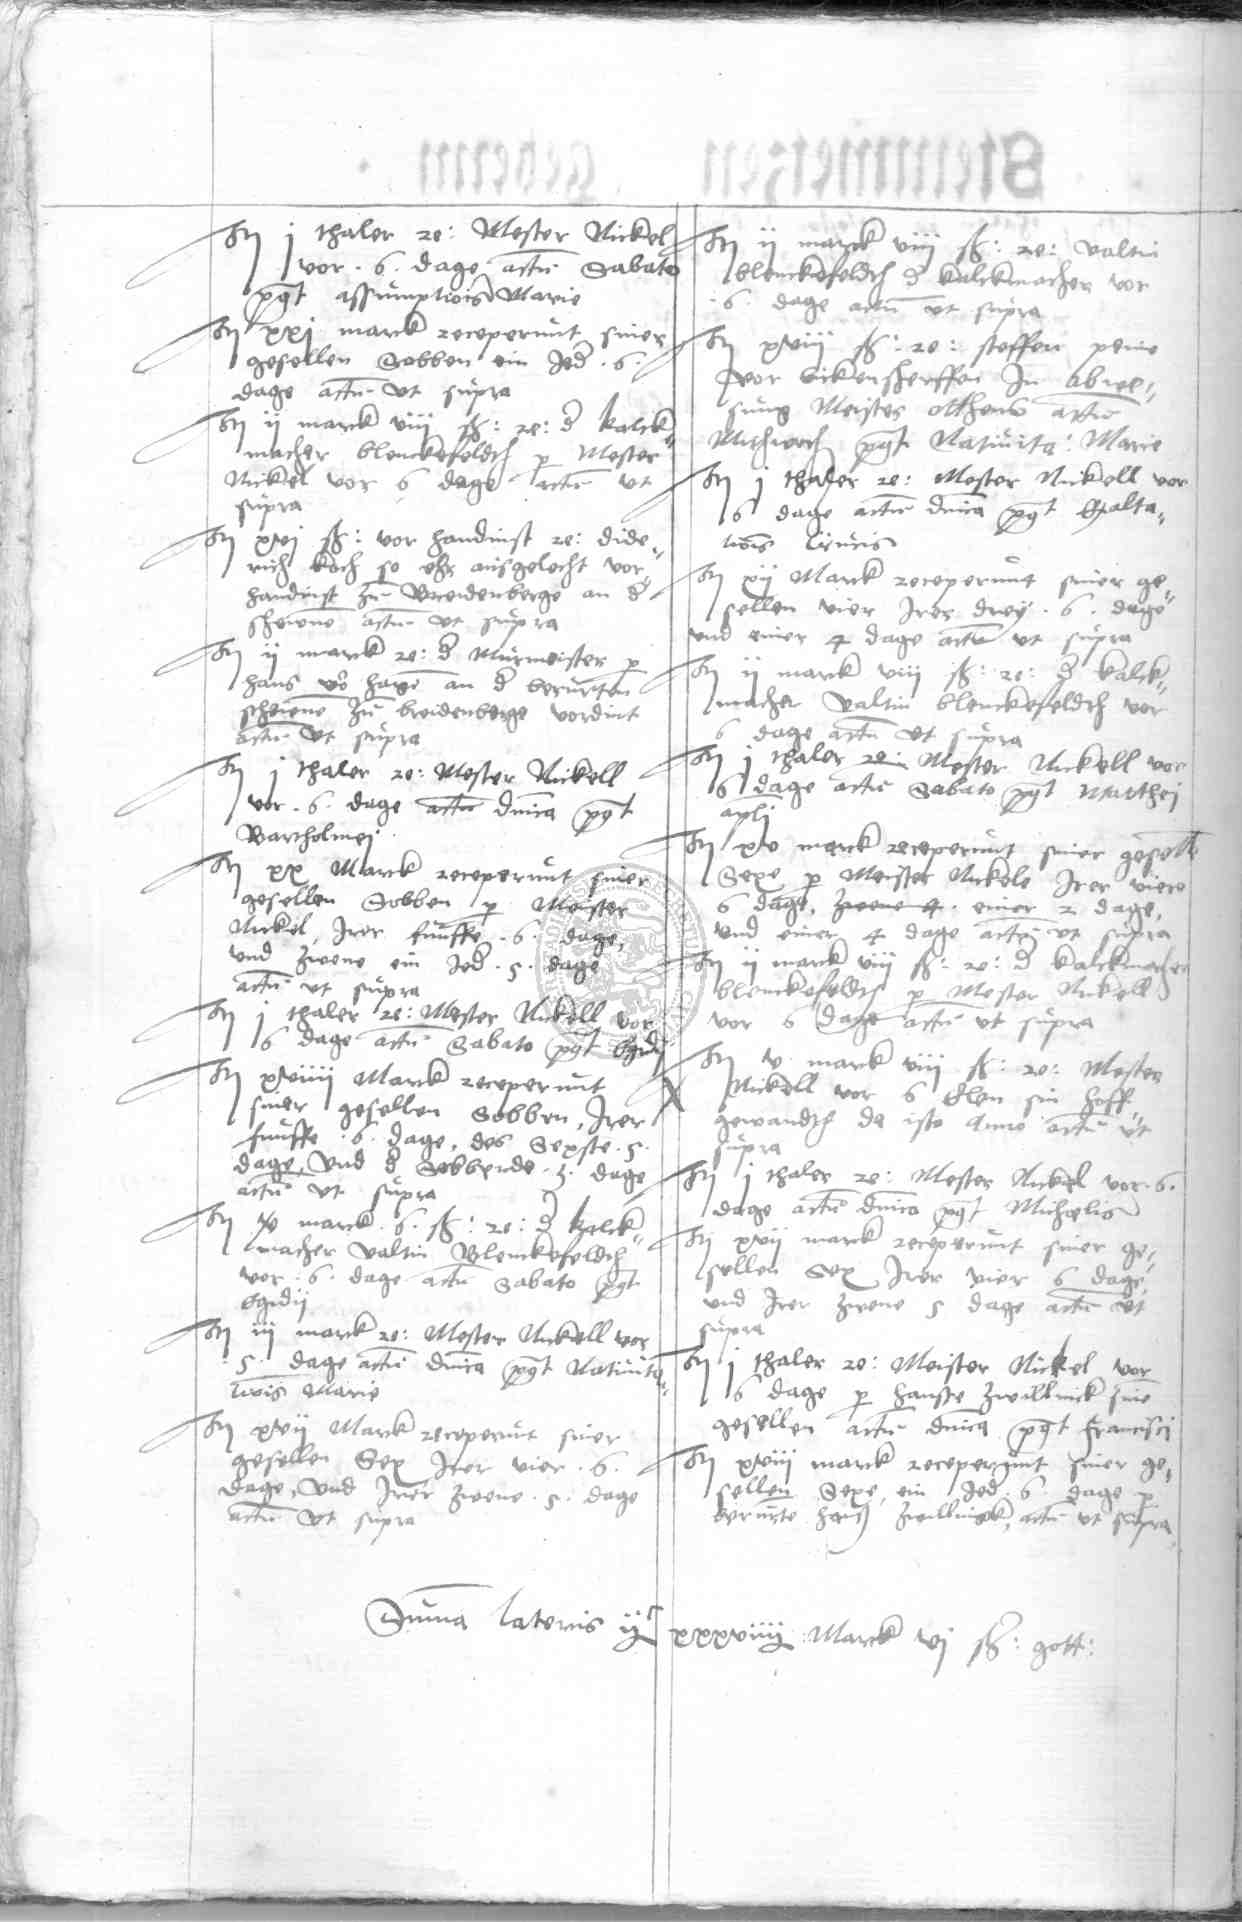 It j thaler re: Mester Nickel
vor . 6 . dage actu Sabato
pꝰt assumptiois Marie
It xxj marck receperunt siner
gesellen Sobben ein Jed . 6 .
dage actu ut supra
It ij marck viij ß : re : d kalck
macher blenckefeldth p Mester
Nickel vor 6 dage actu ut
supra
It xvj ß : vor handinst re : dide
rich koch so ehr ausgelecht vor
handinst zu Breidenberge an d
scheune actu ut supra
It ij marck re : d Murmeister p
hans vo hage an d berurten
scheune zu breidenberge vordint
actu ut supra
It j thaler re : Mester Nickell
vor . 6 . dage actu dnica pꝰt
Bartholmej
It xx Marck receperunt siner
gesellen Sobben p Meister
Nickel, Irer funffe . 6 . dage,
und zwene ein Jed . 5 . dage
actu ut supra
It j thaler re : Mester Nickell vor
6 dage actu Sabato pꝰt Egidij
It xviiij Marck receperunt
siner gesellen Sobben, Irer
funffe . 6 . dage, des Sexste . 5 .
dage, und d Sobbende . 3 . dage
actu ut supra
It marck . 6 . ß : re : d kalck
macher Valtin Blenckefeldth
vor . 6 . dage actu Sabato pꝰt
Egidij
It iij marck re : Mester Nickell vor
. 5 . dage actu dnica pꝰt Nativita
tiois Marie
It xvij Marck receperunt siner
gesellen Sex Irer vier . 6 .
dage, und Irer zwene . 5 . dage
actu ut supra
It ij marck viij ß : re : Valtin
blenckefeldth d kalckmacher vor
. 6 . dage actu ut supra
It xviij ß : re : steffen peine
vor bickenscherffen In abwe
sung Meister otthens actu
Mithwoch pꝰt Nativita : Marie
It j thaler re : Mester Nickell vor
6 dage actu dnica pꝰt Exalta
tiois Crucis
It xij Marck receperunt siner ge
sellen vier Irer drey . 6 . dage
und einer 4 dage actu ut supra
It ij marck viij ß : re : d kalck
macher Valtin blenckefeldth vor
6 dage actu ut supra
It j thaler re : Mester Nickell vor
6 dage actu Sabato pꝰt Matthej
apli
It xv marck receperunt siner geselle
Sexe p Meister Nickele Irer viere
6 dage, zwene 4 . einer 2 dage,
und einer 4 dage actu ut supra
It ij marck viij ß : re : d kalckmacher
blenckefeldth p Mester Nickell
vor 6 dage actu ut supra
It v marck viij ß : re : Mester
Nickell vor 6 Elen sin hoff
gewandth de isto Anno actu ut
supra
It j thaler re : Mester Nickel vor . 6 .
dage actu dnica pꝰt Michaelis
It xvij marck receperunt siner ge
sellen Sex Irer vier 6 dage,
und Irer zwene 5 dage actu ut
supra
It j thaler re : Meister Nickel vor
6 dage p hansse zwillinck sine
gesellen actu dnica pꝰt francisci
It xviij marck receperunt siner ge
sellen Sexe, ein Jed . 6 dage p
berurte hans zwillinck, actu ut supra
Suma lateris ijᶜ xxxviiij Marck vj ß : gott :